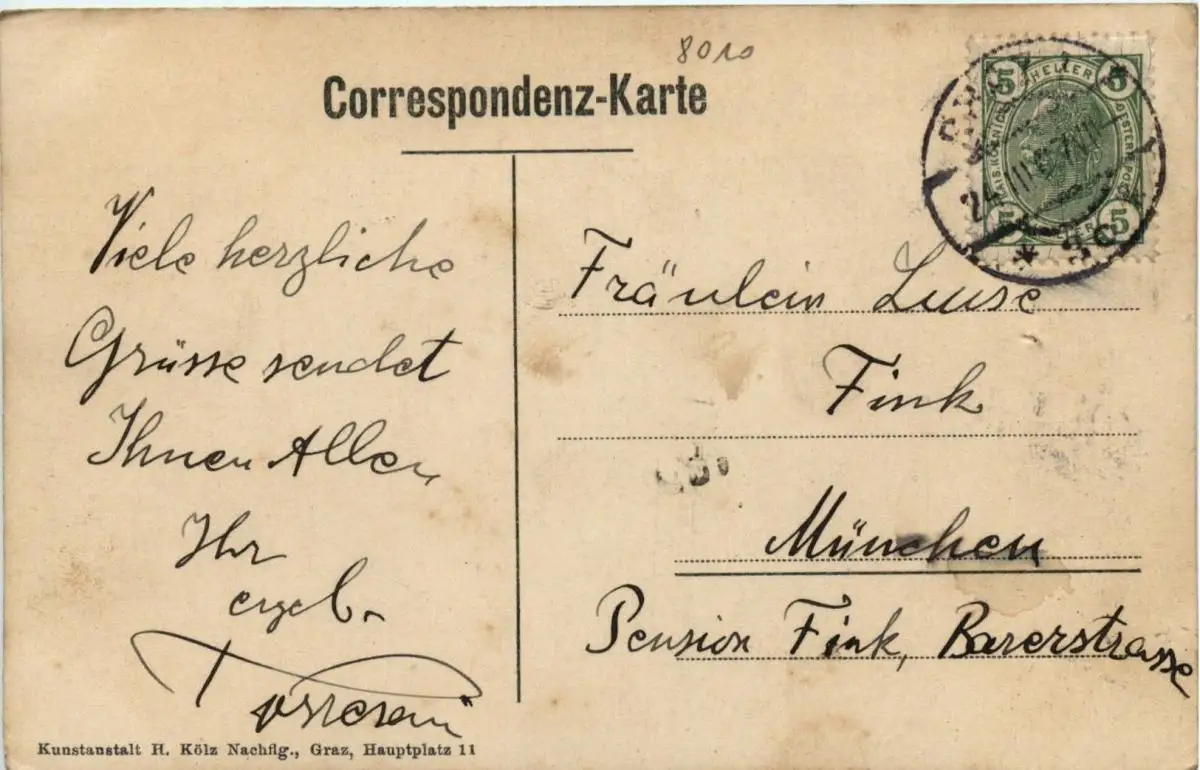 8010
Correspondenz-Karte
5 HELLER 5
5 5
Viele herzliche
Grüsse sendet
Ihnen Allen
Ihr
ergeb.
Fräulein Luise
Fink
München
Pension Fink, Barerstrasse
Kunstanstalt H. Kölz Nachflg., Graz, Hauptplatz 11